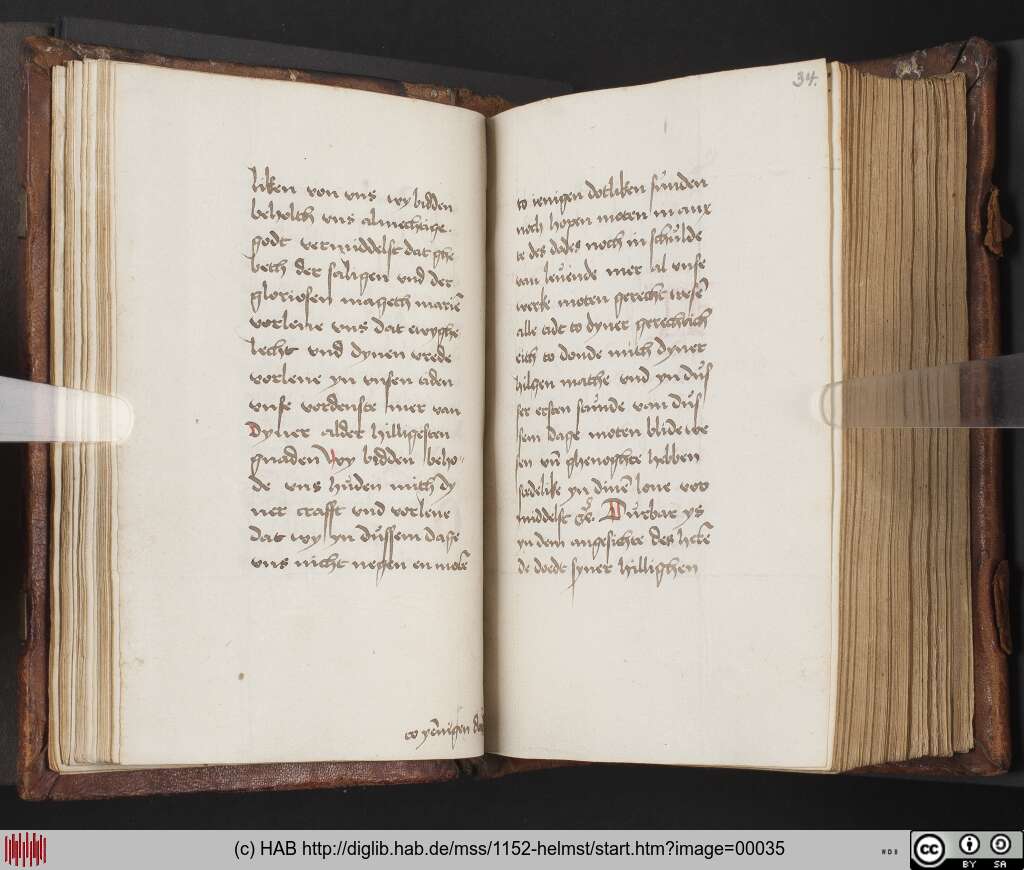 liken von vns wy bidden
beholth vns almechtige
godt vermiddelst dat ghe
beth der saligen vnd der
gloriosen mageth marie
vorlene vns dat ewyghe
lecht vnd dynen vrede
vorlene yn vnsen tiden
vnse vordenste mer van
Dyner alder hilligesten
gnaden Wy bidden beho
de vns hüden mith dy
ner crafft vnd vorlene
dat wy yn düssem dage
vns nicht negen en moten
to yenigen
34.
to ienigen dotliken sünden
noch hopen moten in anx
te des dodes noch in schülde
van leuende mer al vnse
werke moten gerecht wesen
alle tidt to dyner gerechtich
eith to donde mith dyner
hilgen mathe vnd yn düs
ser ersten stunde van düs
sem dage moten blide we
sen vn ghenoghte hebben
 yn dine loue vor
middelst Dürbar ys
yn dem angesichte des
de doedt syner hillighen
(c) HAB http://diglib.hab.de/mss/1152-helmst/start.htm?image=00035
WDB
cc BY SA